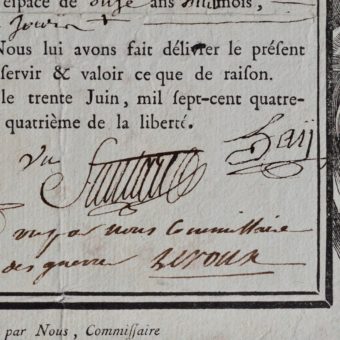 espace de onze ans huit mois,
jours
Nous lui avons fait délivrer le présent
servir & valoir ce que de raison.
le trente Juin, mil sept-cent quatre-
quatrième de la liberté.
vu
Santerre
vu par nous Commissaire
des guerres Leroux
par Nous, Commissaire